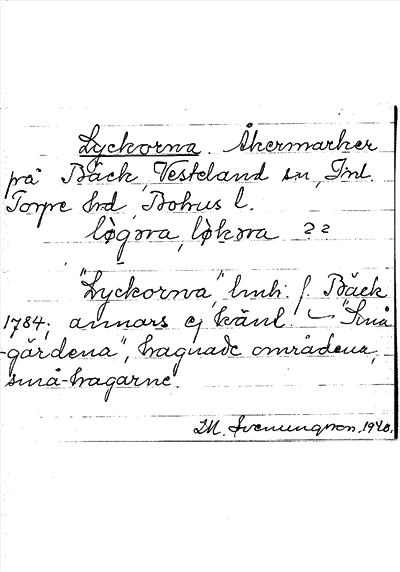 Lyckorna. Åkermarker
på Bäck, Vesteland sn, Inl.
Torpe hrd, Bohus l.
lø̀gɷra, lø̀kɷra ??
"Lyckorna," lmh. f. Bäck
1784; annars ej känt. "Små
-gärdena", hagnade områdena,
små-hagarne.
M. Svenungson. 1920.